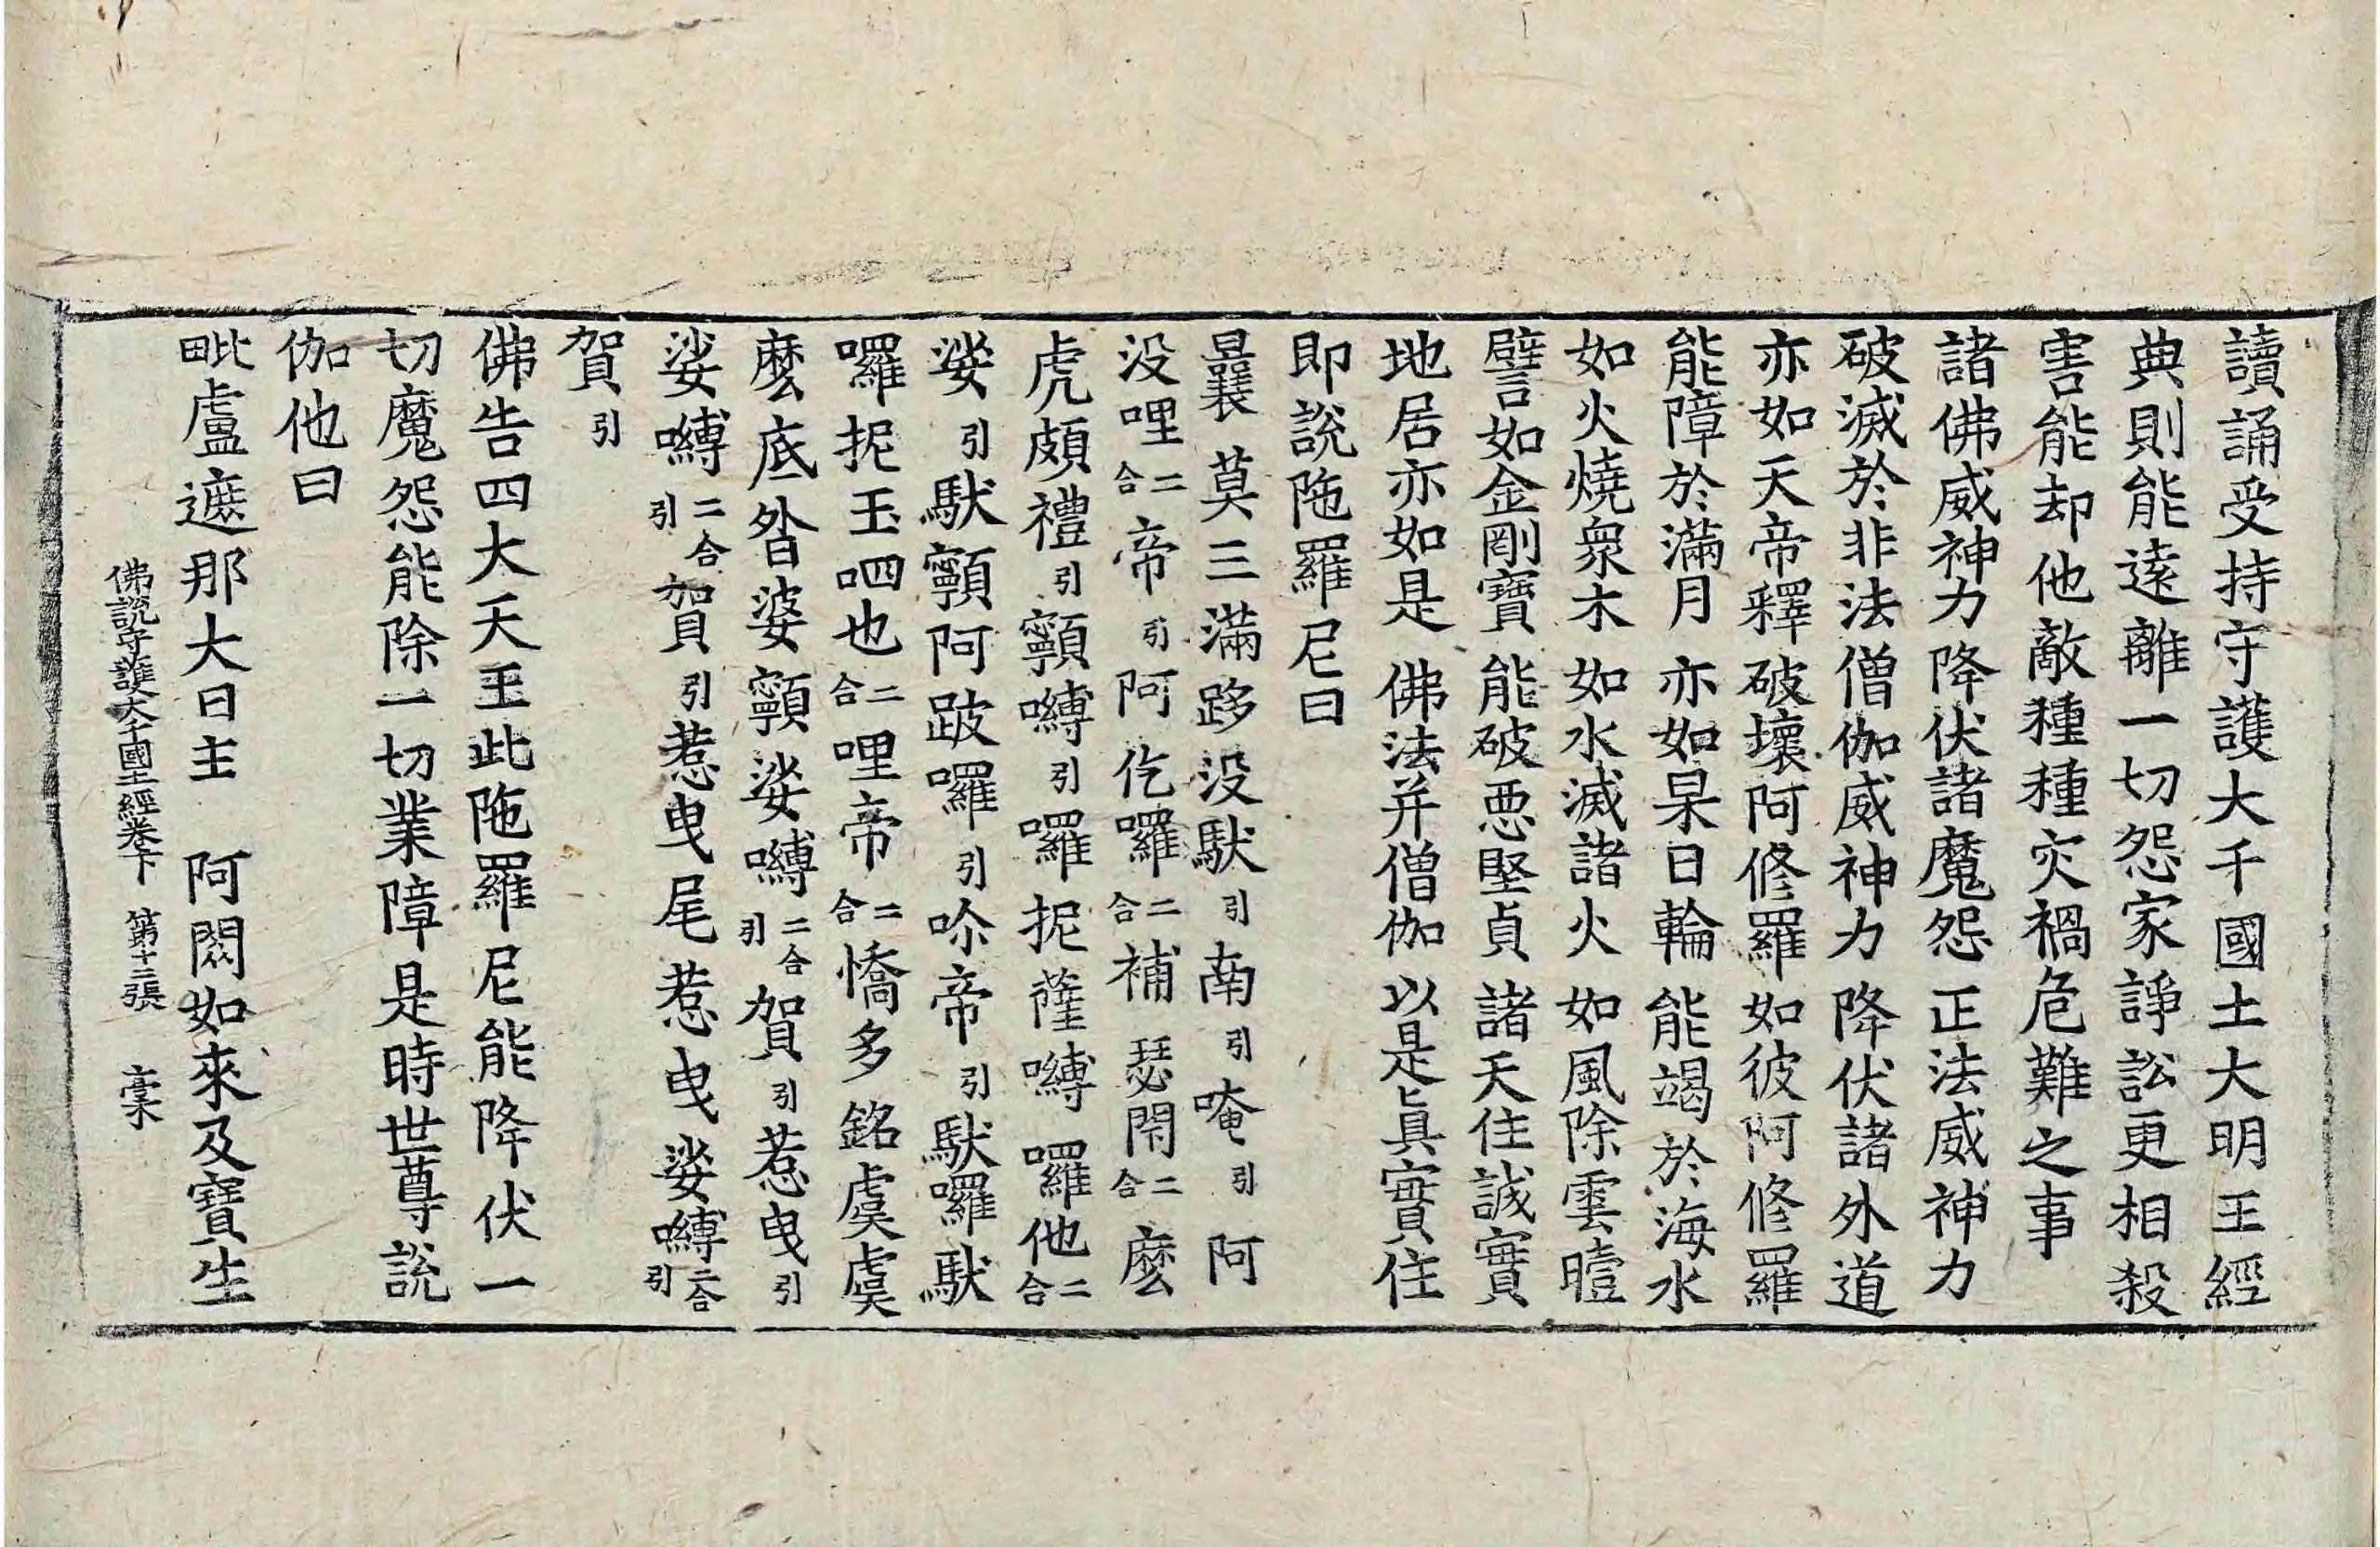 讀誦受持守護大千國土大明王經
典則能遠離一切怨家諍訟更相殺
害能却他敵種種灾禍危難之事
諸佛威神力降伏諸魔怨 正法威神力
破滅於非法僧伽威神力 降伏諸外道
亦如天帝釋 破壞阿修羅 如彼阿修羅
能障於滿月 亦如杲日輪 能竭於海水
如火燒衆木 如水滅諸火 如風除雲曀
譬如金剛寶 能破悪堅貞 諸天住誠實
地居亦如是 佛法并僧伽 以是眞實住
即說陁羅尼曰
曩莫三滿跢没馱引南引唵引阿
没哩二合帝引阿仡羅二合補瑟閇二合麽
虎頗禮引顎嚩引囉抳薩嚩囉他二合
娑引馱顎阿跛囉引㖿帝引馱囉馱
囉抳玉呬也二合哩帝二合憍多銘虞虞
麽底沓婆顎娑嚩二合引賀引惹曳引
娑嚩二合引賀引惹曳尾惹曳娑嚩二合引
賀引
佛告四大天王此陁羅尼能降伏一
切魔怨能除一切業障是時世尊說
伽他曰
毗盧遮那大日主 阿閦如來及寶生
佛說守護大千國土經卷下 第十二張